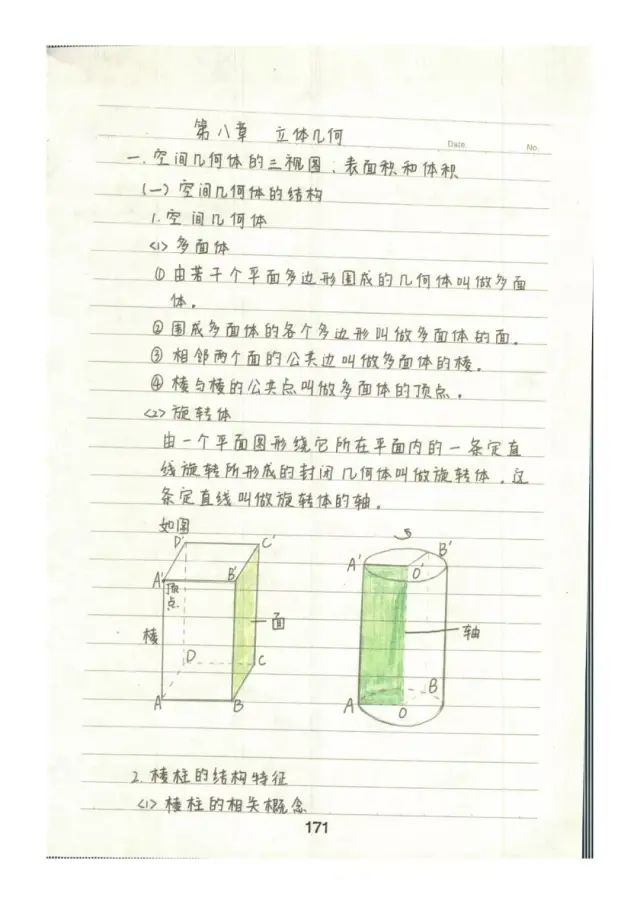 第八章 立体几何
Date. No.
一.空间几何体的三视图、表面积和体积
(一)空间几何体的结构
1.空间几何体
<1>多面体
①由若干个平面多边形围成的几何体叫做多面
体.
②围成多面体的各个多边形叫做多面体的面.
③相邻两个面的公共边叫做多面体的棱.
④棱与棱的公共点叫做多面体的顶点.
<2>旋转体
由一个平面图形绕它所在平面内的一条定直
线旋转所形成的封闭几何体叫做旋转体.这
条定直线叫做旋转体的轴.
如图
D' C'
A' B'
顶点
棱
面
D C
A B
A' O' B'
轴
A O B
2.棱柱的结构特征
<1>棱柱的相关概念
171